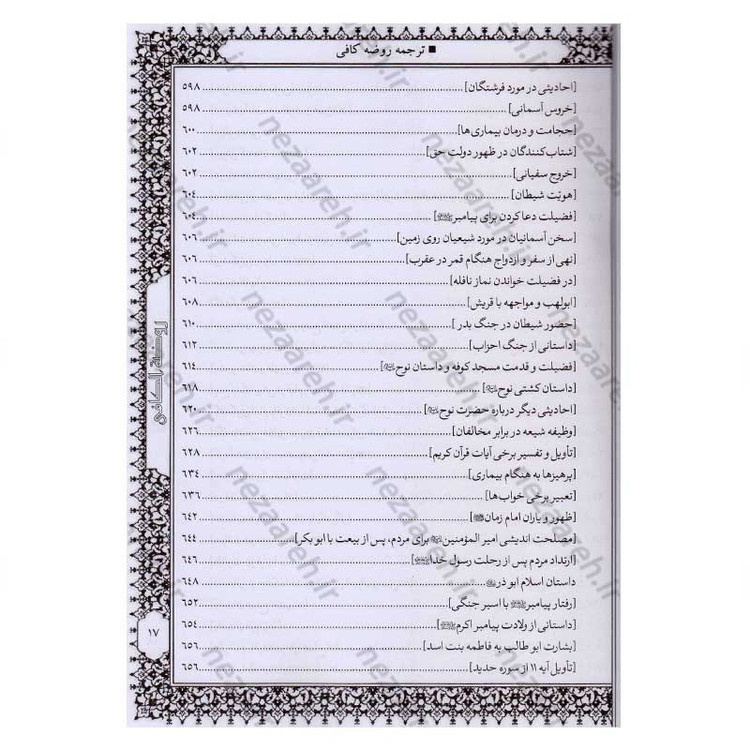 ■ ترجمه روضه کافی
[احادیثی در مورد فرشتگان] ۵۹۸
[خروس آسمانی] ۵۹۸
[حجامت و درمان بیماری‌ها] ۶۰۰
[شتاب‌کنندگان در ظهور دولت حق] ۶۰۲
[خروج سفیانی] ۶۰۲
[هویّت شیطان] ۶۰۴
[فضیلت دعا کردن برای پیامبرﷺ] ۶۰۴
[سخن آسمانیان در مورد شیعیان روی زمین] ۶۰۶
[نهی از سفر و ازدواج هنگام قمر در عقرب] ۶۰۶
[در فضیلت خواندن نماز نافله] ۶۰۶
[ابولهب و مواجهه با قریش] ۶۰۸
[حضور شیطان در جنگ بدر] ۶۱۰
[داستانی از جنگ احزاب] ۶۱۲
[فضیلت و قدمت مسجد کوفه و داستان نوح] ۶۱۴
[داستان کشتی نوح] ۶۱۸
[احادیثی دیگر درباره حضرت نوح] ۶۲۰
[وظیفه شیعه در برابر مخالفان] ۶۲۶
[تأویل و تفسیر برخی آیات قرآن کریم] ۶۲۸
[پرهیزها به هنگام بیماری] ۶۳۴
[تعبیر برخی خواب‌ها] ۶۳۶
[ظهور و یاران امام زمان] ۶۴۲
[مصلحت اندیشی امیر المؤمنین برای مردم، پس از بیعت با ابو بکر] ۶۴۴
[ارتداد مردم پس از رحلت رسول خداﷺ] ۶۴۶
داستان اسلام ابو ذر ۶۴۸
[رفتار پیامبرﷺ با اسیر جنگی] ۶۵۲
[داستانی از ولادت پیامبر اکرمﷺ] ۶۵۴
[بشارت ابو طالب به فاطمه بنت اسد] ۶۵۶
[تأویل آیه ۱۱ از سوره حدید] ۶۵۶
روضة الکافی
۱۷
nezaareh.ir